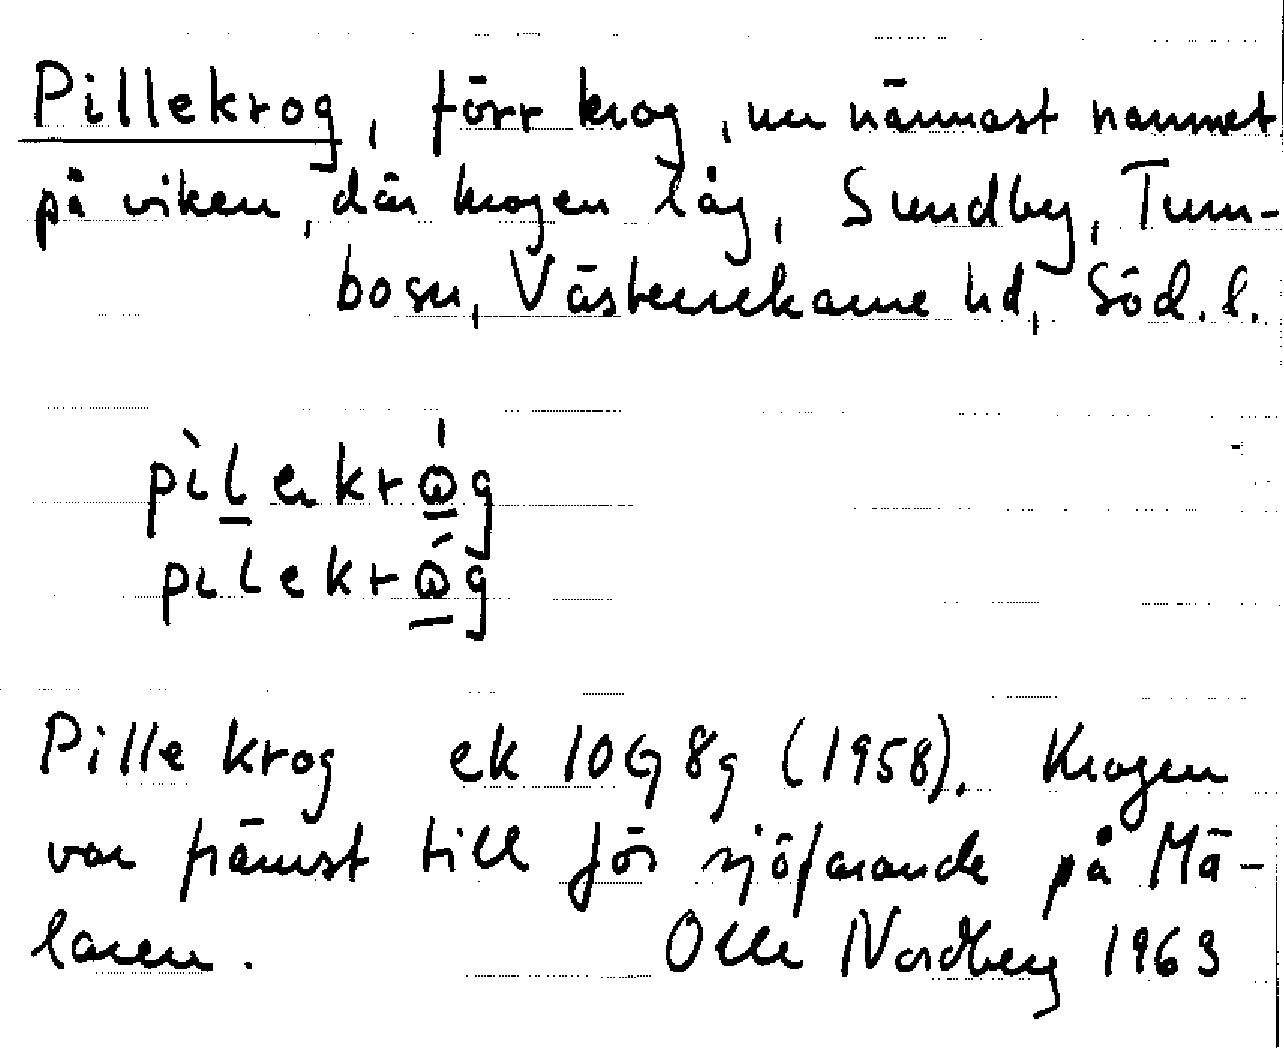 Pillekrog, förr krog, nu närmast namnet
på viken, där krogen låg, Sundby, Tum-
bosn, Västerrekarne hd, Söd. l.
pìlekrǿg
pilekrǿg
Pillekrog ek 10G 8g (1958). Krogen
var främst till för sjöfarande på Mä-
laren. Olle Nordberg 1963